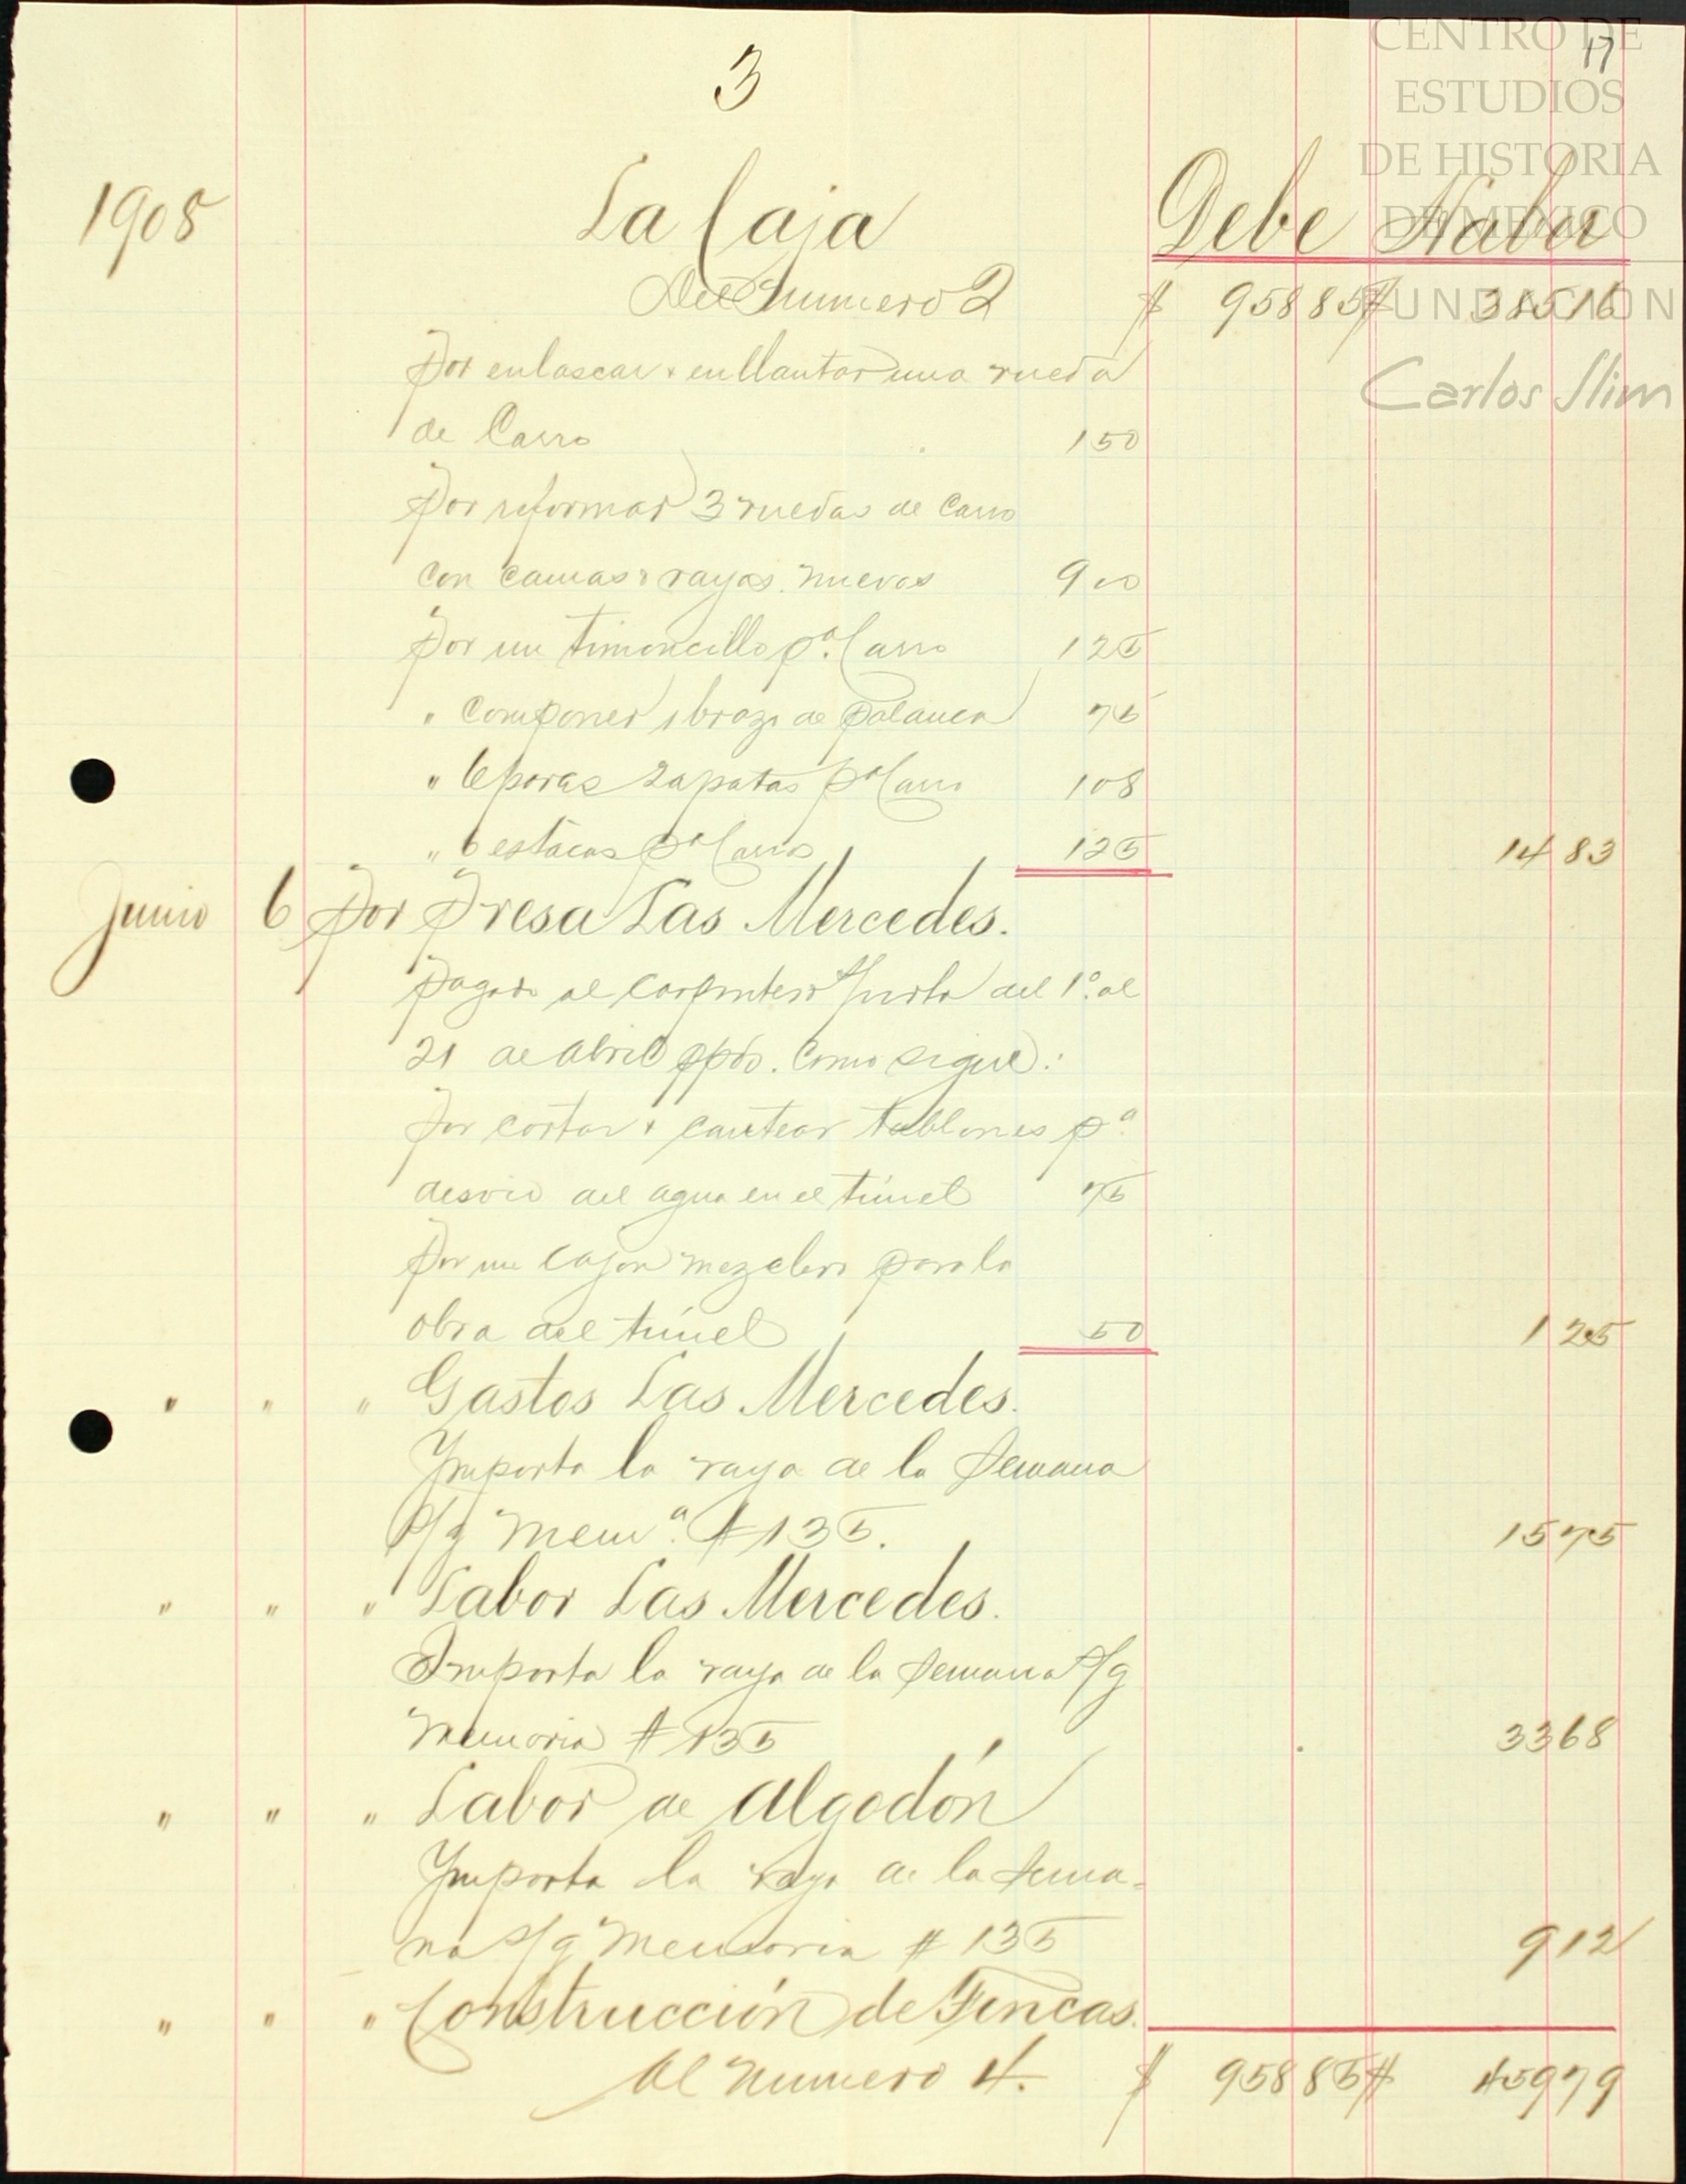 3
17
CENTRO DE
ESTUDIOS
DE HISTORIA
DE MEXICO
FUNDACION
Carlos Slim
1905 La Caja Debe Haber
Del numero 2 $ 958 85 $ 385 16
Por enlascar y enllantar una rueda
de Carro 1 50
Por reformar 3 ruedas de Carro
con camas y rayos nuevos 9 00
Por un timoncillo pª Carro 1 25
" Componer 1 brazo de palanca 75
" 6 pares zapatas pª Carro 1 08
" 6 estacas pª Carros 1 25 14 83
Junio 6 Por Presa Las Mercedes.
Pagado al Carpintero del 1º al
21 de Abril ppdo. Como sigue:
Por cortar y cantear tablones pª
desvio del agua en el túnel 75
Por un cajon mezclero para la
obra del túnel 50 1 25
" " " Gastos Las Mercedes.
Importa la raya de la Semana
s/g Memª. # 135. 15 75
" " " Labor Las Mercedes.
Importa la raya de la Semana s/g
Memoria # 135 33 68
" " " Labor de Algodón
Importa la raya de la Sema-
na s/g Memoria # 135 9 12
" " " Construcción de Fincas.
Al numero 4. $ 958 85 $ 459 79